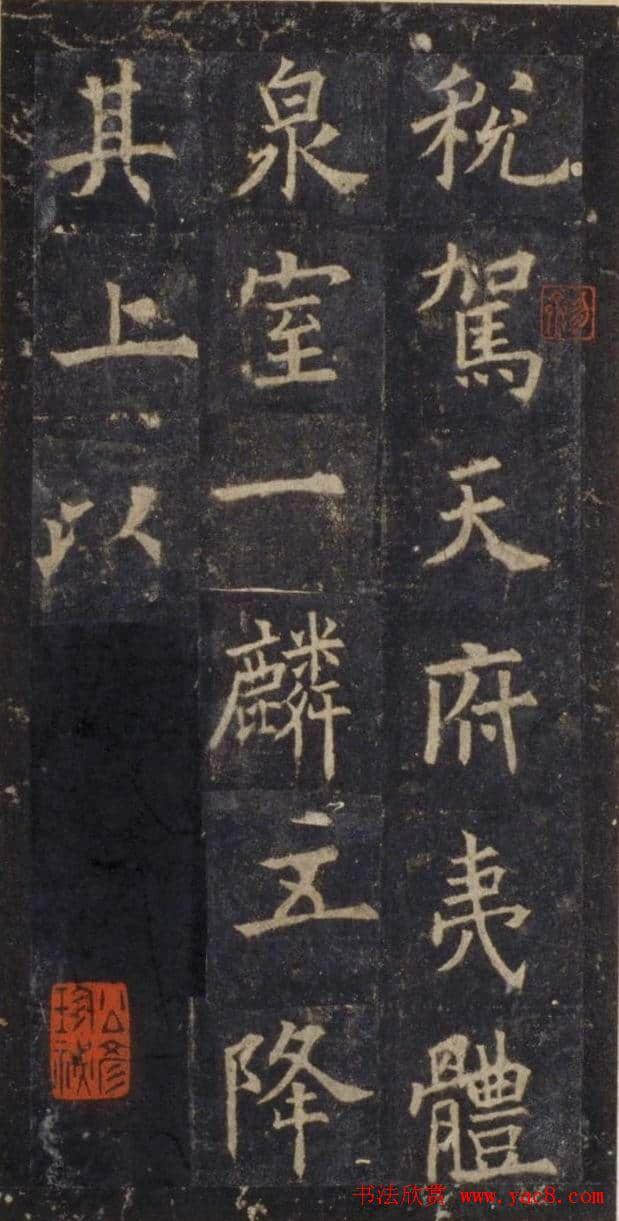 税駕天府夷體
泉室一麟立降
其上以
书法欣赏 www.yac8.com